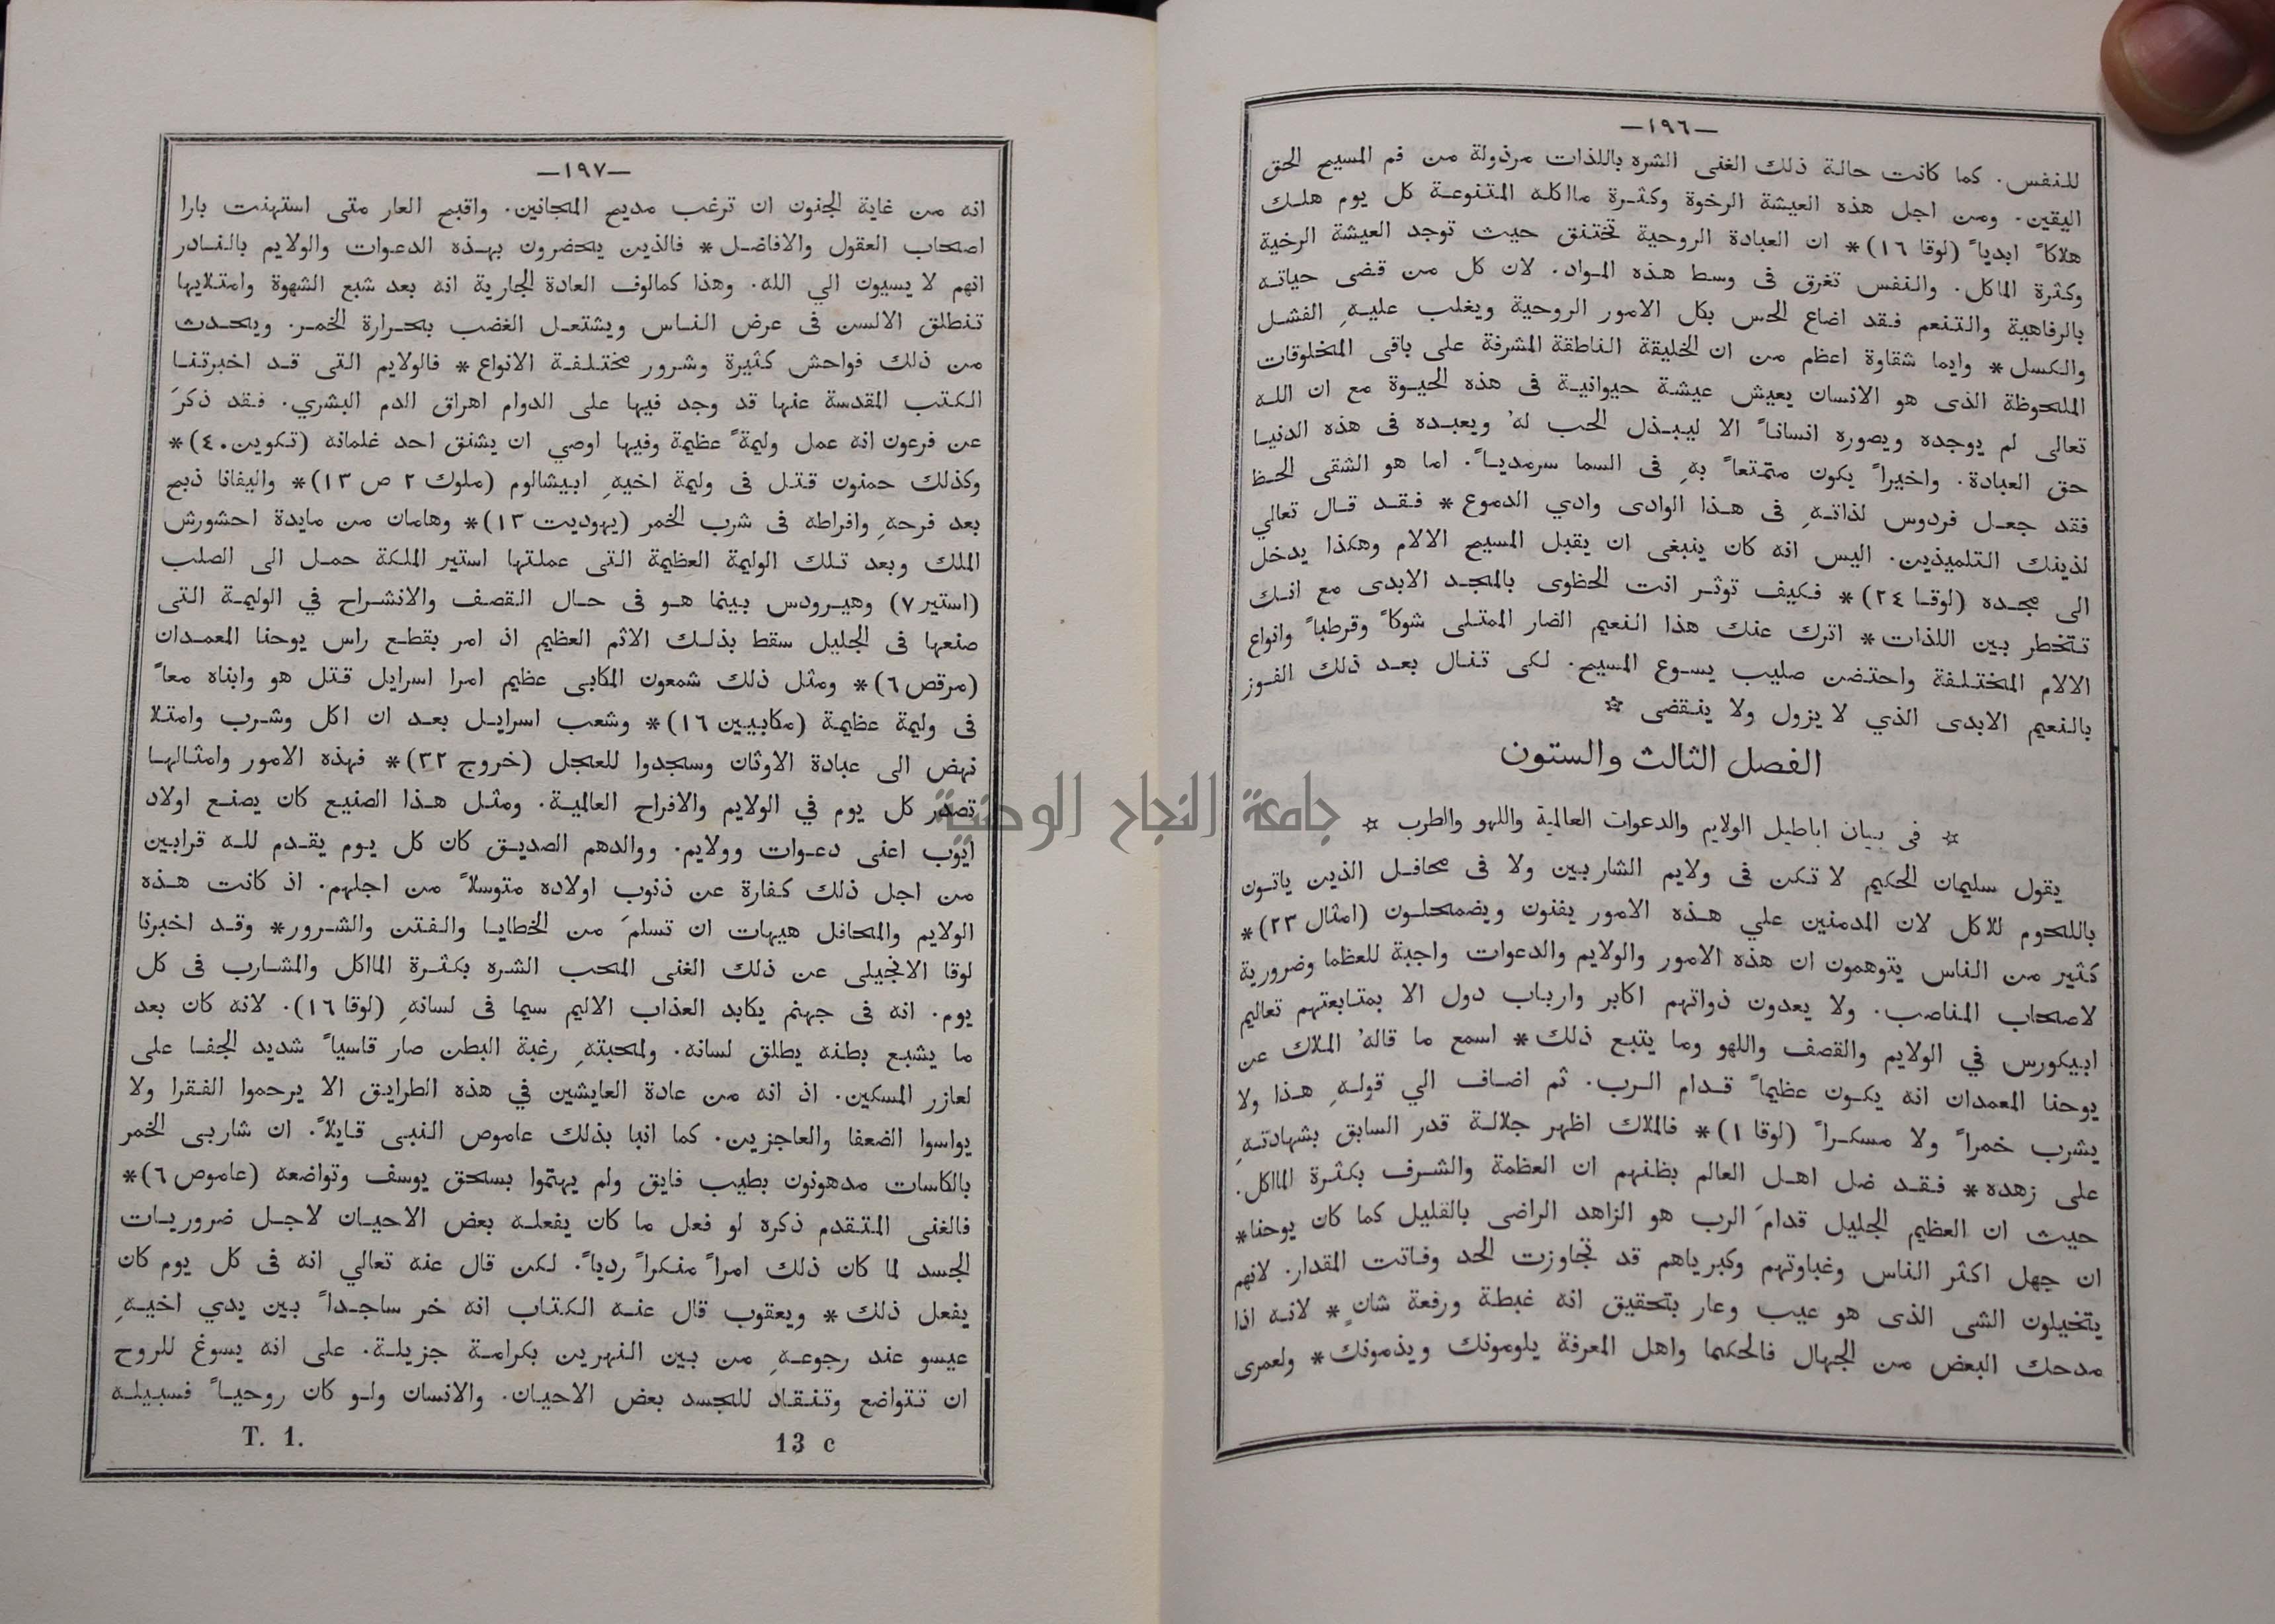 —١٩٦—
للنفس. كما كانت حالة ذلك الغنى الشره باللذات مرذولة من فم المسيح الحق
اليقين. ومن اجل هذه العيشة الرخوة وكثرة مااكله المتنوعة كل يوم هلك
هلاكاً ابدياً (لوقا ١٦)* ان العبادة الروحية تختنق حيث توجد العيشة الرخية
وكثرة الماكل. والنفس تغرق فى وسط هذه المواد. لان كل من قضى حياته
بالرفاهية والتنعم فقد اضاع الحس بكل الامور الروحية ويغلب عليهِ الفشل
والكسل* وايما شقاوة اعظم من ان الخليقة الناطقة المشرفة على باقى المخلوقات
الملحوظة الذى هو الانسان يعيش عيشة حيوانية فى هذه الحيوة مع ان الله
تعالى لم يوجده ويصوره انساناً الا ليبذل الحب لهُ ويعبده فى هذه الدنيا
حق العبادة. واخيراً يكون متمتعاً بهِ فى السما سرمدياً. اما هو الشقى الحظ
فقد جعل فردوس لذاتهِ فى هذا الوادى وادي الدموع* فقد قال تعالي
لذينك التلميذين. اليس انه كان ينبغى ان يقبل المسيح الالام وهكذا يدخل
الى مجده (لوقا ٢٤)* فكيف توثر انت الحظوى بالمجد الابدى مع انك
تتخطر بين اللذات* اترك عنك هذا النعيم الضار الممتلى شوكاً وقرطباً وانواع
الالام المختلفة واحتضن صليب يسوع المسيح. لكى تنال بعد ذلك الفوز
بالنعيم الابدى الذي لا يزول ولا ينقضى ☆
الفصل الثالث والستون
☆ فى بيان اباطيل الولايم والدعوات العالمية واللهو والطرب ☆
يقول سليمان الحكيم لا تكن فى ولايم الشاربين ولا فى محافل الذين ياتون
باللحوم للاكل لان المدمنين علي هذه الامور يفنون ويضمحلون (امثال ٢٣)*
كثير من الناس يتوهمون ان هذه الامور والولايم والدعوات واجبة للعظما وضرورية
لاصحاب المناصب. ولا يعدون ذواتهم اكابر وارباب دول الا بمتابعتهم تعاليم
ابيكورس في الولايم والقصف واللهو وما يتبع ذلك* اسمع ما قالهُ الملاك عن
يوحنا المعمدان انه يكون عظيماً قدام الرب. ثم اضاف الي قولهِ هذا ولا
يشرب خمراً ولا مسكراً (لوقا ١)* فالملاك اظهر جلالة قدر السابق بشهادتهِ
على زهده* فقد ضل اهل العالم بظنهم ان العظمة والشرف بكثرة المااكل.
حيث ان العظيم الجليل قدامَ الرب هو الزاهد الراضى بالقليل كما كان يوحنا*
ان جهل اكثر الناس وغباوتهم وكبرياهم قد تجاوزت الحد وفاتت المقدار. لانهم
يتخيلون الشى الذى هو عيب وعار بتحقيق انه غبطة ورفعة شانٍ* لانه اذا
مدحك البعض من الجهال فالحكما واهل المعرفة يلومونك ويذمونك* ولعمرى
—١٩٧—
انه من غاية الجنون ان ترغب مديح المجانين. واقبح العار متى استهنت بارا
اصحاب العقول والافاضل* فالذين يحضرون بهذه الدعوات والولايم بالنادر
انهم لا يسيون الي الله. وهذا كمالوف العادة الجارية انه بعد شبع الشهوة وامتلايها
تنطلق الالسن فى عرض الناس ويشتعل الغضب بحرارة الخمر. ويحدث
من ذلك فواحش كثيرة وشرور مختلفة الانواع* فالولايم التى قد اخبرتنا
الكتب المقدسة عنها قد وجد فيها على الدوام اهراق الدم البشري. فقد ذكرَ
عن فرعون انه عمل وليمةً عظيمة وفيها اوصي ان يشنق احد غلمانه (تكوين ٤٠)*
وكذلك حمنون قتل فى وليمة اخيهِ ابيشالوم (ملوك ٢ ص ١٣)* واليفانا ذبح
بعد فرحهِ وافراطه فى شرب الخمر (يهوديت ١٣)* وهامان من مايدة احشورش
الملك وبعد تلك الوليمة العظيمة التى عملتها استير الملكة حمل الى الصلب
(استير ٧) وهيرودس بينما هو فى حال القصف والانشراح في الوليمة التى
صنعها فى الجليل سقط بذلك الاثم العظيم اذ امر بقطع راس يوحنا المعمدان
(مرقص ٦)* ومثل ذلك شمعون المكابى عظيم امرا اسرايل قتل هو وابناه معاً
فى وليمة عظيمة (مكابيين ١٦)* وشعب اسرايل بعد ان اكل وشرب وامتلا
نهض الى عبادة الاوثان وسجدوا للعجل (خروج ٣٢)* فهذه الامور وامثالها
تصدر كل يوم في الولايم والافراح العالمية. ومثل هذا الصنيع كان يصنع اولاد
ايوب اعنى دعوات وولايم. ووالدهم الصديق كان كل يوم يقدم لله قرابين
من اجل ذلك كفارة عن ذنوب اولاده متوسلاً من اجلهم. اذ كانت هذه
الولايم والمحافل هيهات ان تسلمَ من الخطايا والفتن والشرور* وقد اخبرنا
لوقا الانجيلى عن ذلك الغنى المحب الشره بكثرة المااكل والمشارب فى كل
يوم. انه فى جهنم يكابد العذاب الاليم سيما فى لسانهِ (لوقا ١٦). لانه كان بعد
ما يشبع بطنه يطلق لسانه. ولمحبتهِ رغبة البطن صار قاسياً شديد الجفا على
لعازر المسكين. اذ انه من عادة العايشين في هذه الطرايق الا يرحموا الفقرا ولا
يواسوا الضعفا والعاجزين. كما انبا بذلك عاموص النبى قايلاً. ان شاربى الخمر
بالكاسات مدهونون بطيب فايق ولم يهتموا بسحق يوسف وتواضعه (عاموص ٦)*
فالغنى المتقدم ذكره لو فعل ما كان يفعله بعض الاحيان لاجل ضروريات
الجسد لما كان ذلك امراً منكراً ردياً. لكن قال عنه تعالي انه فى كل يوم كان
يفعل ذلك* ويعقوب قال عنه الكتاب انه خر ساجداً بين يدي اخيهِ
عيسو عند رجوعهِ من بين النهرين بكرامة جزيلة. على انه يسوغ للروح
ان تتواضع وتنقاد للجسد بعض الاحيان. والانسان ولو كان روحياً فسبيله
T. 1. 13 c
جامعة النجاح الوطنية